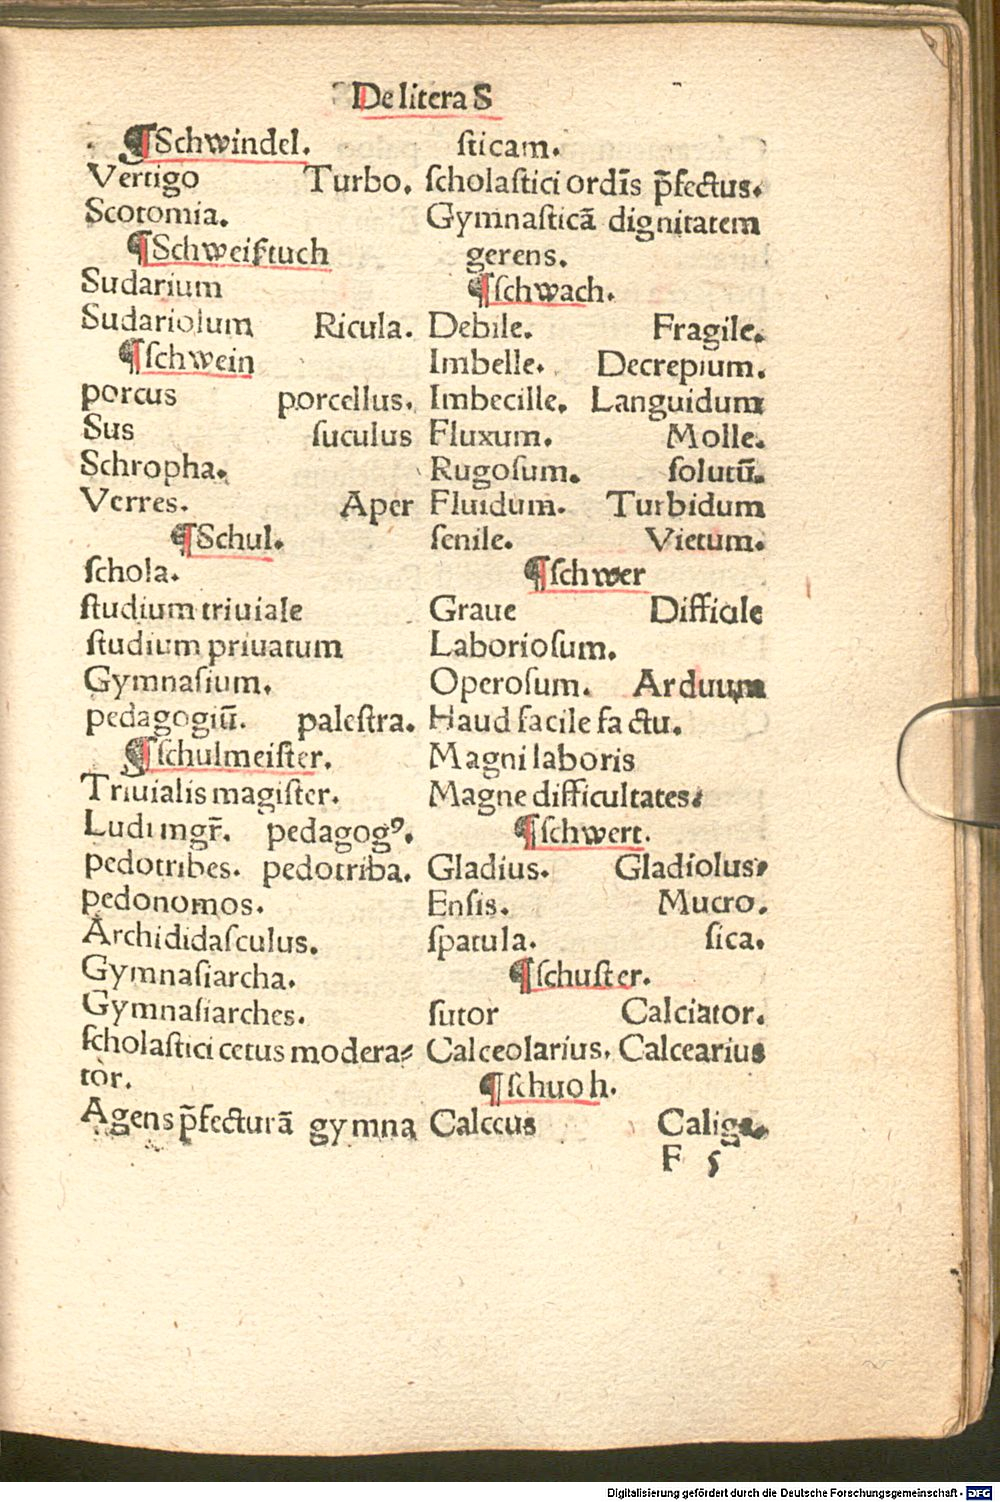 De litera S
¶Schwindel.
Vertigo Turbo.
Scotomia.
¶Schweiſtuch
Sudarium
Sudariolum Ricula.
¶ſchwein
porcus porcellus.
Sus ſuculus
Schropha.
Verres. Aper
¶Schul.
ſchola.
ſtudium triuiale
ſtudium priuatum
Gymnaſium.
pedagogiū. paleſtra.
¶ſchulmeiſter.
Triuialis magiſter.
Ludi mgr̄. pedagogꝰ.
pedotribes. pedotriba.
pedonomos.
Archididaſculus.
Gymnaſiarcha.
Gymnaſiarches.
ſcholaſtici cetus modera⸗
tor.
Agens p̄fecturā gymna
ſticam.
ſcholaſtici ordīs p̄fectus.
Gymnaſticā dignitatem
gerens.
¶ſchwach.
Debile. Fragile.
Imbelle. Decrepium.
Imbecille. Languidum
Fluxum. Molle.
Rugoſum. ſolutū.
Fluidum. Turbidum
ſenile. Vietum.
¶ſchwer
Graue Difficile
Laborioſum.
Operoſum. Arduum
Haud facile factu.
Magni laboris
Magne difficultates.
¶ſchwert.
Gladius. Gladiolus.
Enſis. Mucro.
ſpatula. ſica.
¶ſchuſter.
ſutor Calciator.
Calceolarius. Calcearius
¶ſchuoh.
Calceus Caliga.
F 5
Digitalisierung gefördert durch die Deutsche Forschungsgemeinschaft - DFG